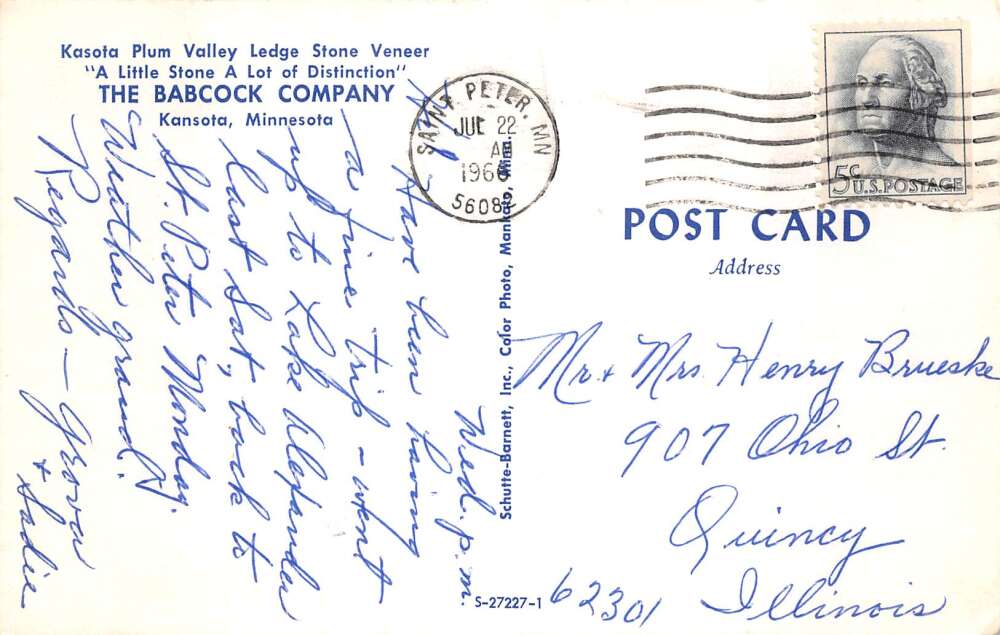 Kasota Plum Valley Ledge Stone Veneer
"A Little Stone A Lot of Distinction"
THE BABCOCK COMPANY
Kansota, Minnesota
SAINT PETER, MN
JUL 22
AM
1966
5608
5c U.S. POSTAGE
POST CARD
Address
Wed. p.m.
Hi
Have been having
a fine trip – went
up to Lake Alexander
last Sat, back to
St. Peter Monday.
Weather grand.
Regards – Grover
+ Sadie
Schutte-Barnett, Inc., Color Photo, Mankato, Minn.
S-27227-1
Mr. + Mrs. Henry Brueske
907 Ohio St.
Quincy
62301 Illinois